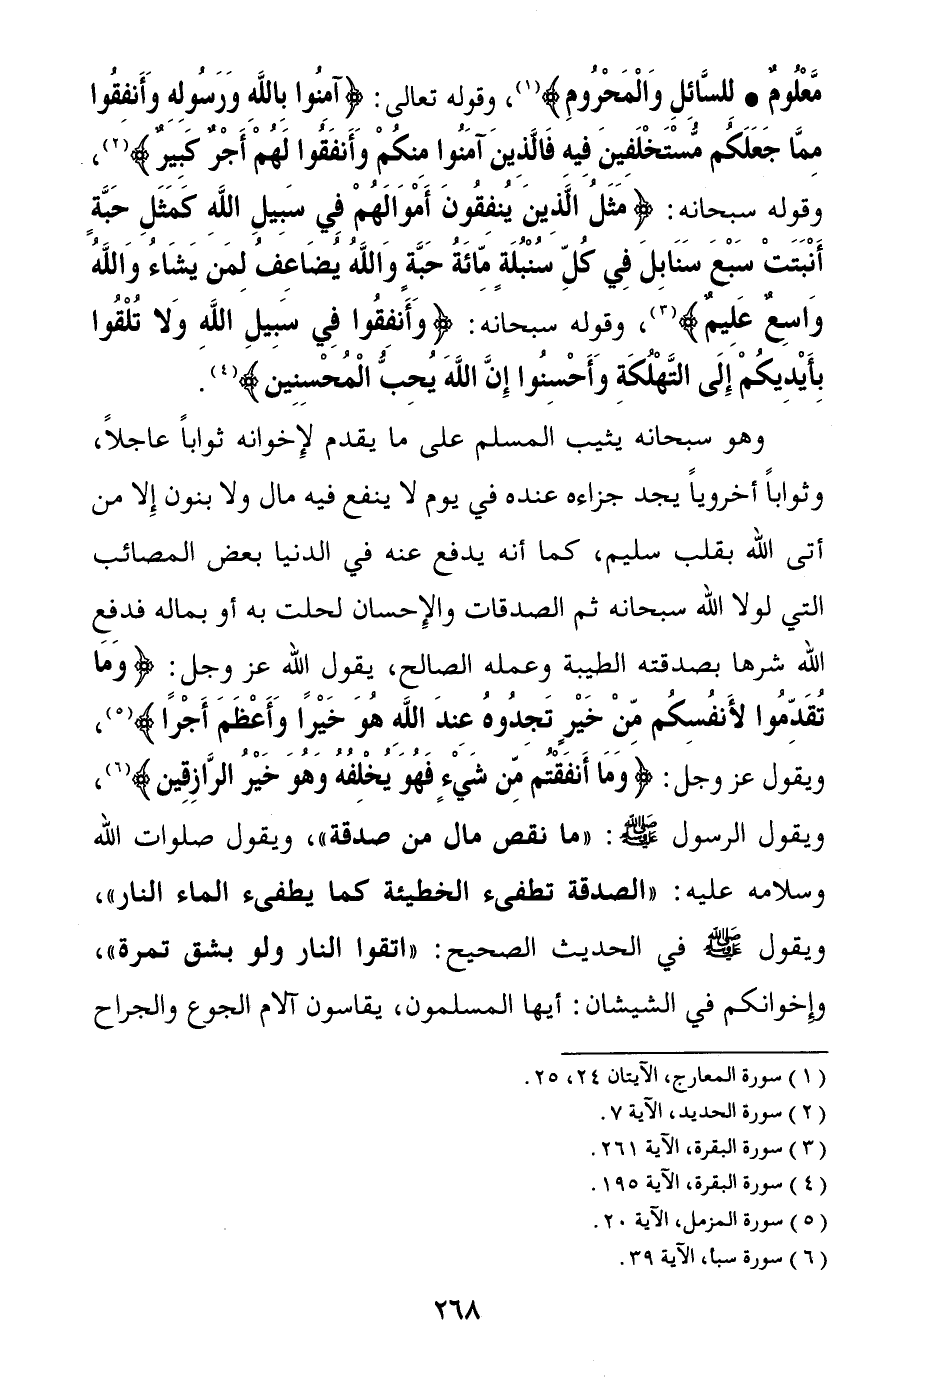 مَّعْلُومٌ • لِلسَّائِلِ وَالْمَحْرُومِ﴾(١)، وقوله تعالى: ﴿آمِنُوا بِاللَّهِ وَرَسُولِهِ وَأَنفِقُوا
مِمَّا جَعَلَكُم مُّسْتَخْلَفِينَ فِيهِ فَالَّذِينَ آمَنُوا مِنكُمْ وَأَنفَقُوا لَهُمْ أَجْرٌ كَبِيرٌ﴾(٢)،
وقوله سبحانه: ﴿مَثَلُ الَّذِينَ يُنفِقُونَ أَمْوَالَهُمْ فِي سَبِيلِ اللَّهِ كَمَثَلِ حَبَّةٍ
أَنْبَتَتْ سَبْعَ سَنَابِلَ فِي كُلِّ سُنْبُلَةٍ مِّائَةُ حَبَّةٍ وَاللَّهُ يُضَاعِفُ لِمَن يَشَاءُ وَاللَّهُ
وَاسِعٌ عَلِيمٌ﴾(٣)، وقوله سبحانه: ﴿وَأَنفِقُوا فِي سَبِيلِ اللَّهِ وَلَا تُلْقُوا
بِأَيْدِيكُمْ إِلَى التَّهْلُكَةِ وَأَحْسِنُوا إِنَّ اللَّهَ يُحِبُّ الْمُحْسِنِين﴾(٤).
وهو سبحانه يثيب المسلم على ما يقدم لإخوانه ثواباً عاجلاً،
وثواباً أخروياً يجد جزاءه عنده في يوم لا ينفع فيه مال ولا بنون إلا من
أتى الله بقلب سليم، كما أنه يدفع عنه في الدنيا بعض المصائب
التي لولا الله سبحانه ثم الصدقات والإحسان لحلت به أو بماله فدفع
الله شرها بصدقته الطيبة وعمله الصالح، يقول الله عز وجل: ﴿وَمَا
تُقَدِّمُوا لأَنفُسِكُم مِّنْ خَيْرٍ تَجِدُوهُ عِندَ اللَّهِ هُوَ خَيْرًا وَأَعْظَمَ أَجْرًا﴾(٥)،
ويقول عز وجل: ﴿وَمَا أَنفَقْتُم مِّن شَيْءٍ فَهُوَ يُخْلِفُهُ وَهُوَ خَيْرُ الرَّازِقِين﴾(٦)،
ويقول الرسول ﷺ: «ما نقص مال من صدقة»، ويقول صلوات الله
وسلامه عليه: «الصدقة تطفىء الخطيئة كما يطفىء الماء النار»،
ويقول ﷺ في الحديث الصحيح: «اتقوا النار ولو بشق تمرة»،
وإخوانكم في الشيشان: أيها المسلمون، يقاسون آلام الجوع والجراح
(١) سورة المعارج، الآيتان ٢٤، ٢٥.
(٢) سورة الحديد، الآية ٧.
(٣) سورة البقرة، الآية ٢٦١.
(٤) سورة البقرة، الآية ١٩٥.
(٥) سورة المزمل، الآية ٢٠.
(٦) سورة سبأ، الآية ٣٩.
٢٦٨